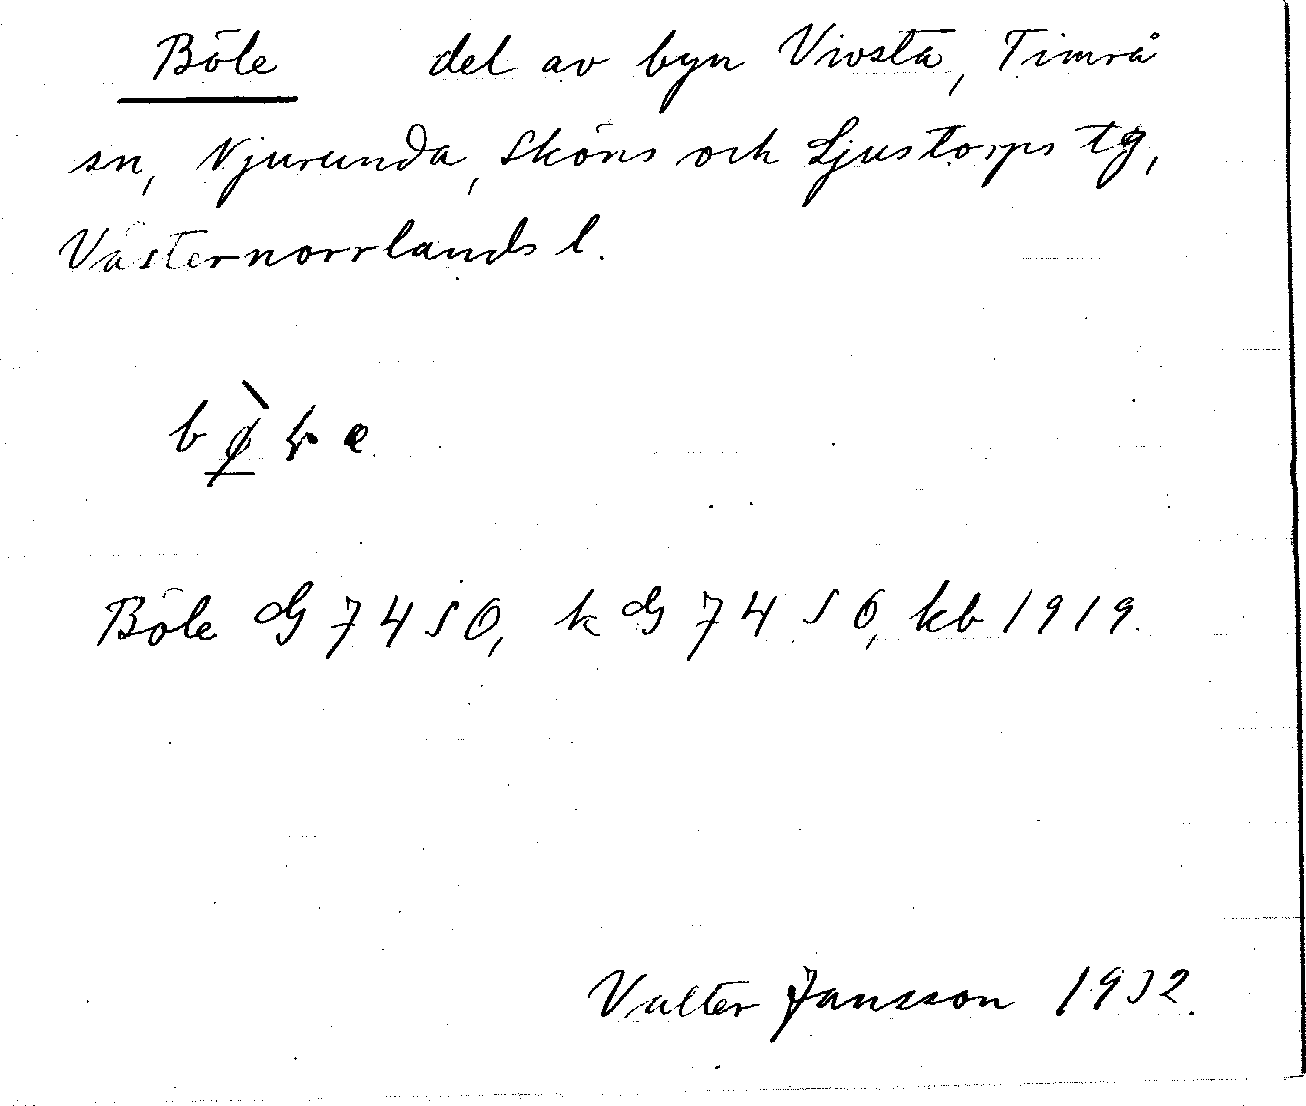 Böle del av byn Vivsta, Timrå
sn, Njurunda, Sköns och Ljustorps tg,
Västernorrlands l.
Böle G 7450, k G 7450, kb 1919.
Valter Jansson 1932.